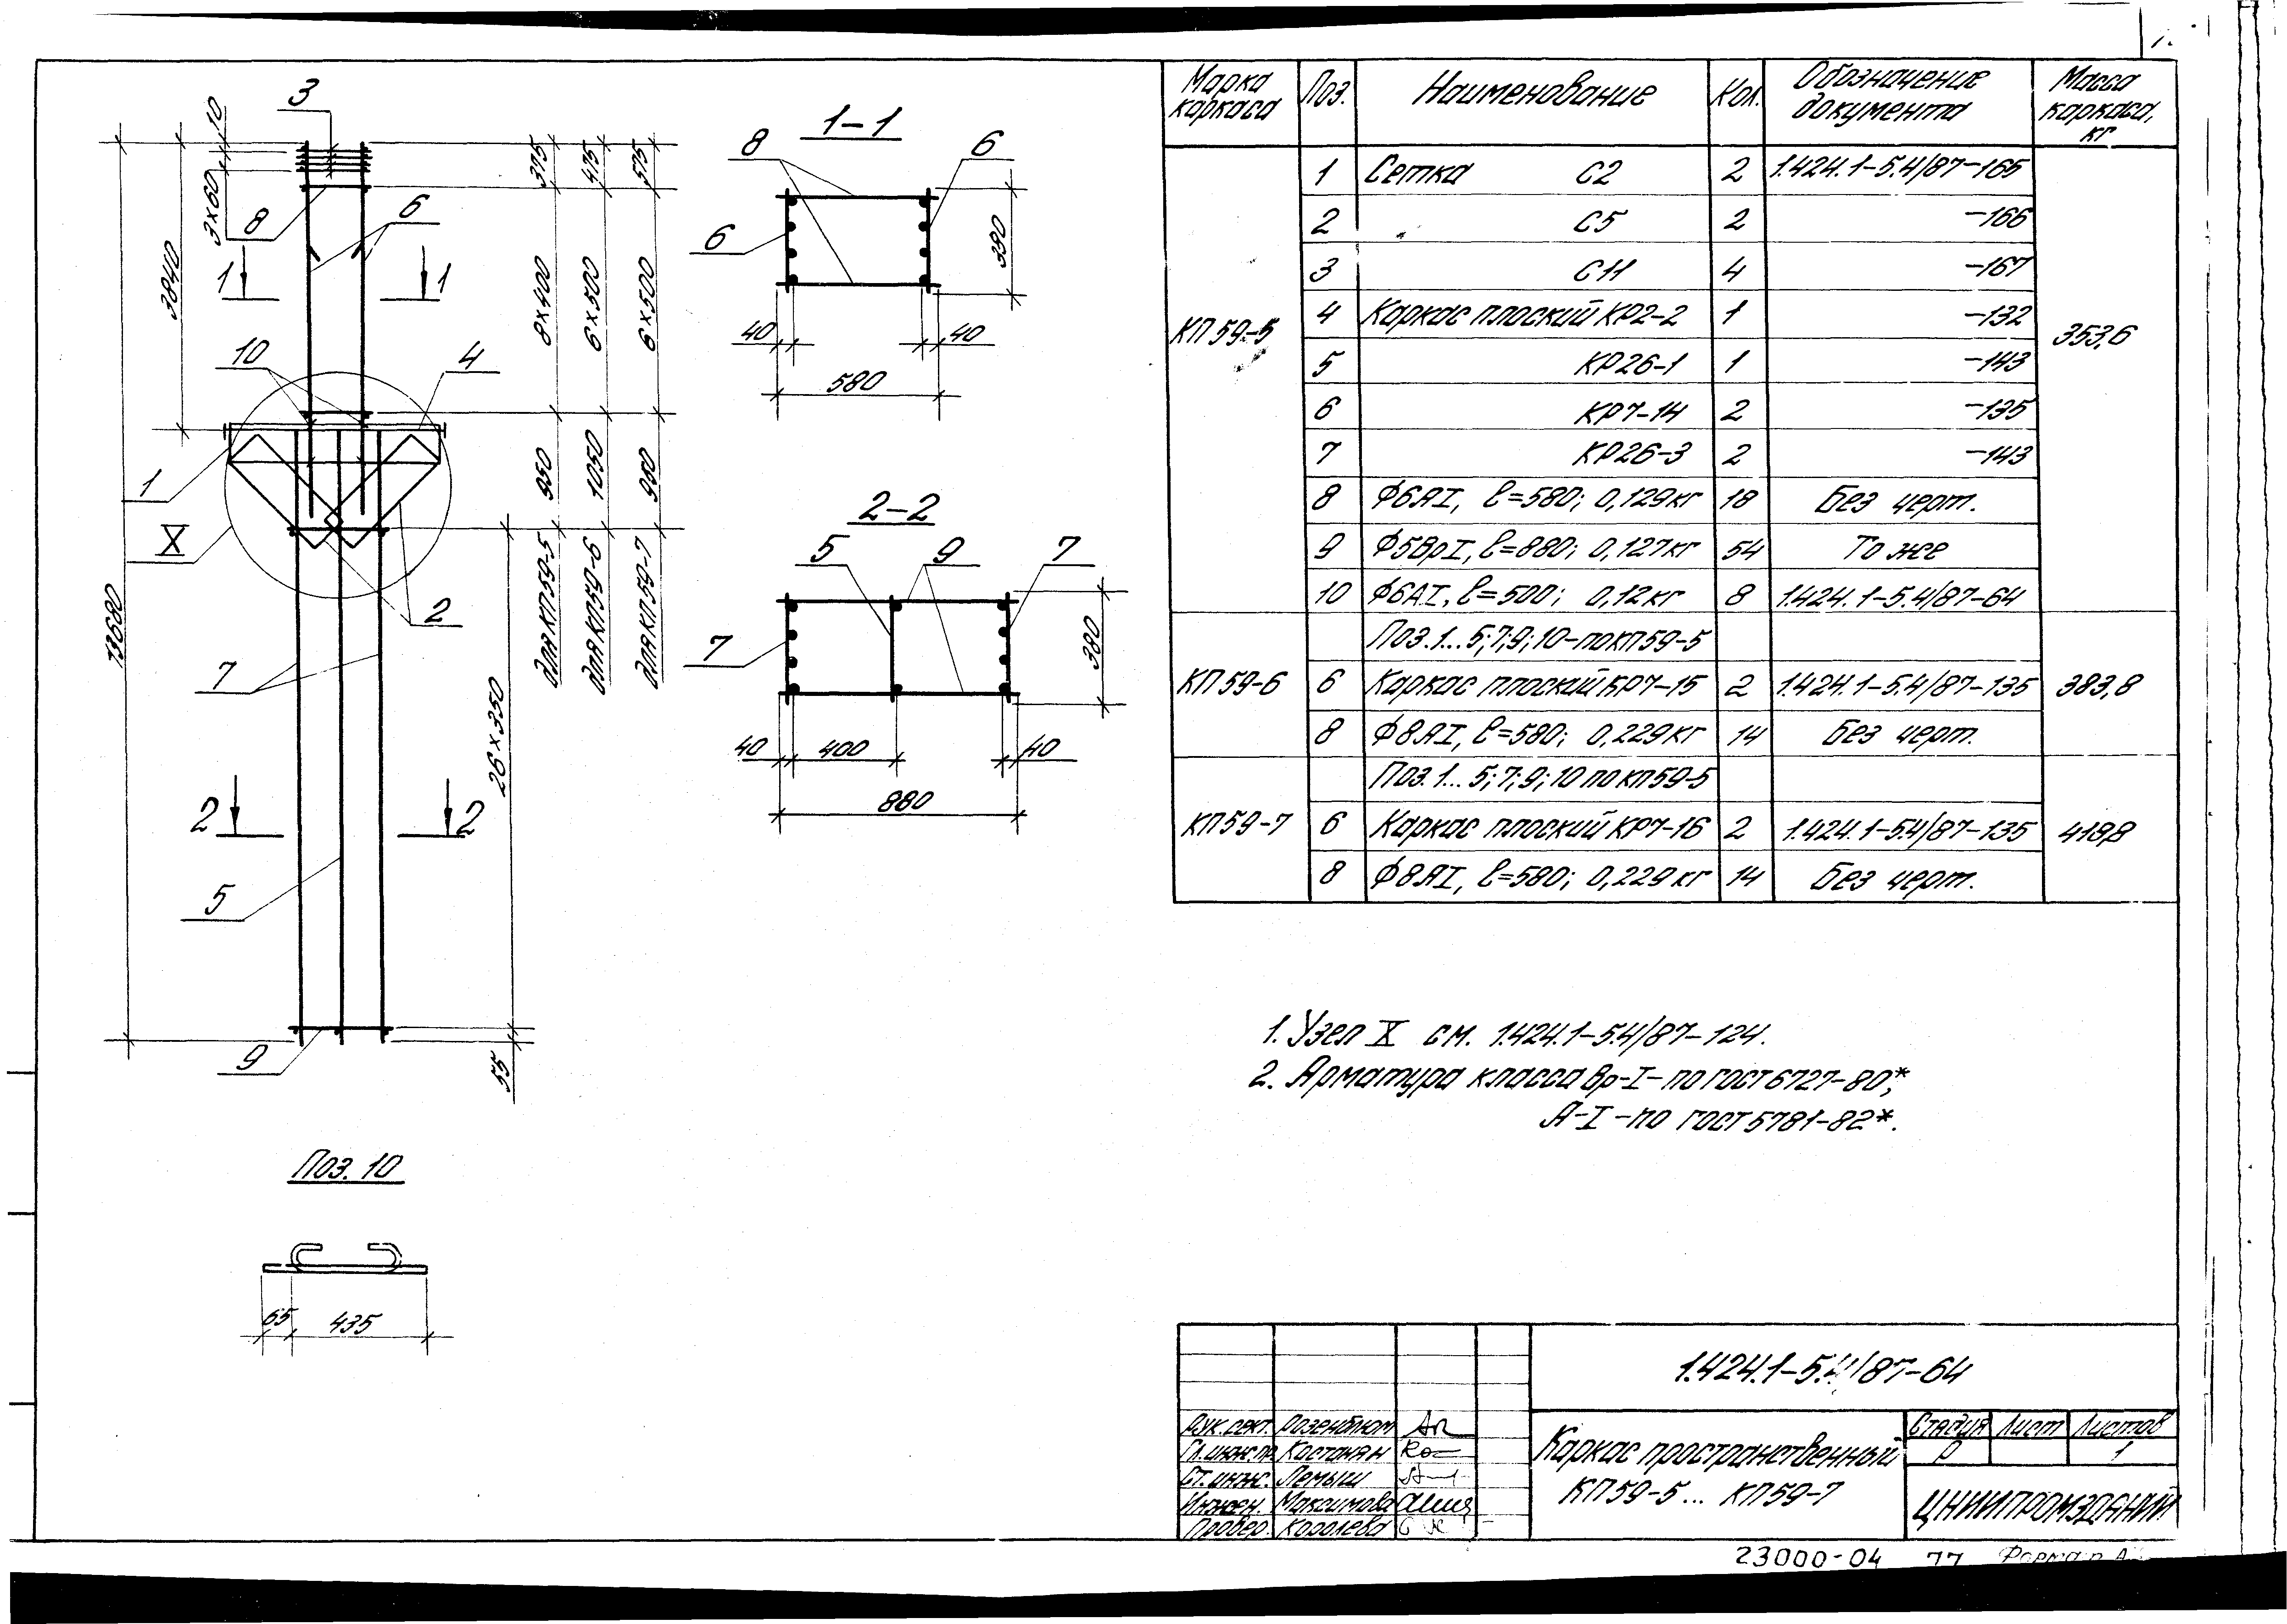 3
10
3×60
8
6
3840
1 1
10
4
1
X
2
13680
7
2 2
5
9
375
475
575
8×400
6×500
6×500
950
1050
950
для КП59-5
для КП59-6
для КП59-7
26×350
55
1-1
8 6
6
380
40 40
580
2-2
5 9 7
7
380
40 400 40
880
Поз. 10
65 435
Марка каркаса Поз. Наименование Кол. Обозначение документа Масса каркаса, кг
КП59-5 353,6
1 Сетка С2 2 1.424.1-5.4/87-165
2 С5 2 -166
3 С11 4 -167
4 Каркас плоский КР2-2 1 -132
5 КР26-1 1 -143
6 КР7-14 2 -135
7 КР26-3 2 -143
8 Ф6АI, ℓ=580; 0,129кг 18 Без черт.
9 Ф5ВрI, ℓ=880; 0,127кг 54 То же
10 Ф6АI, ℓ=500; 0,12кг 8 1.424.1-5.4/87-64
Поз.1...5;7;9;10-по КП59-5
КП59-6 6 Каркас плоский КР7-15 2 1.424.1-5.4/87-135 383,8
8 Ф8АI, ℓ=580; 0,229кг 14 Без черт.
Поз.1...5;7;9;10 по КП59-5
КП59-7 6 Каркас плоский КР7-16 2 1.424.1-5.4/87-135 418,8
8 Ф8АI, ℓ=580; 0,229кг 14 Без черт.
1. Узел X см. 1.424.1-5.4/87-124.
2. Арматура класса Вр-I-по ГОСТ 6727-80*;
А-I-по ГОСТ 5781-82*.
1.424.1-5.4/87-64
Рук.сект. Розенблюм
Гл.инж.пр. Костанян
Ст.инж. Лемыш
Инжен. Максимова
Провер. Королева
Каркас пространственный
КП59-5... КП59-7
Стадия Лист Листов
Р 1
ЦНИИПРОМЗДАНИЙ
23000-04 77 Формат А